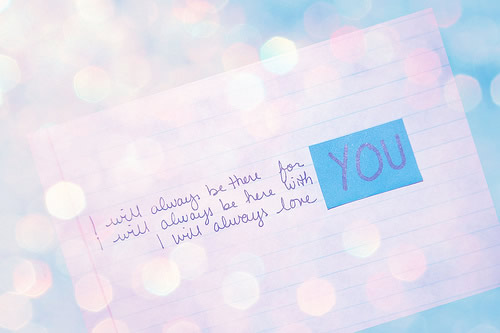 I will always be there for
I will always be here with
I will always love
YOU